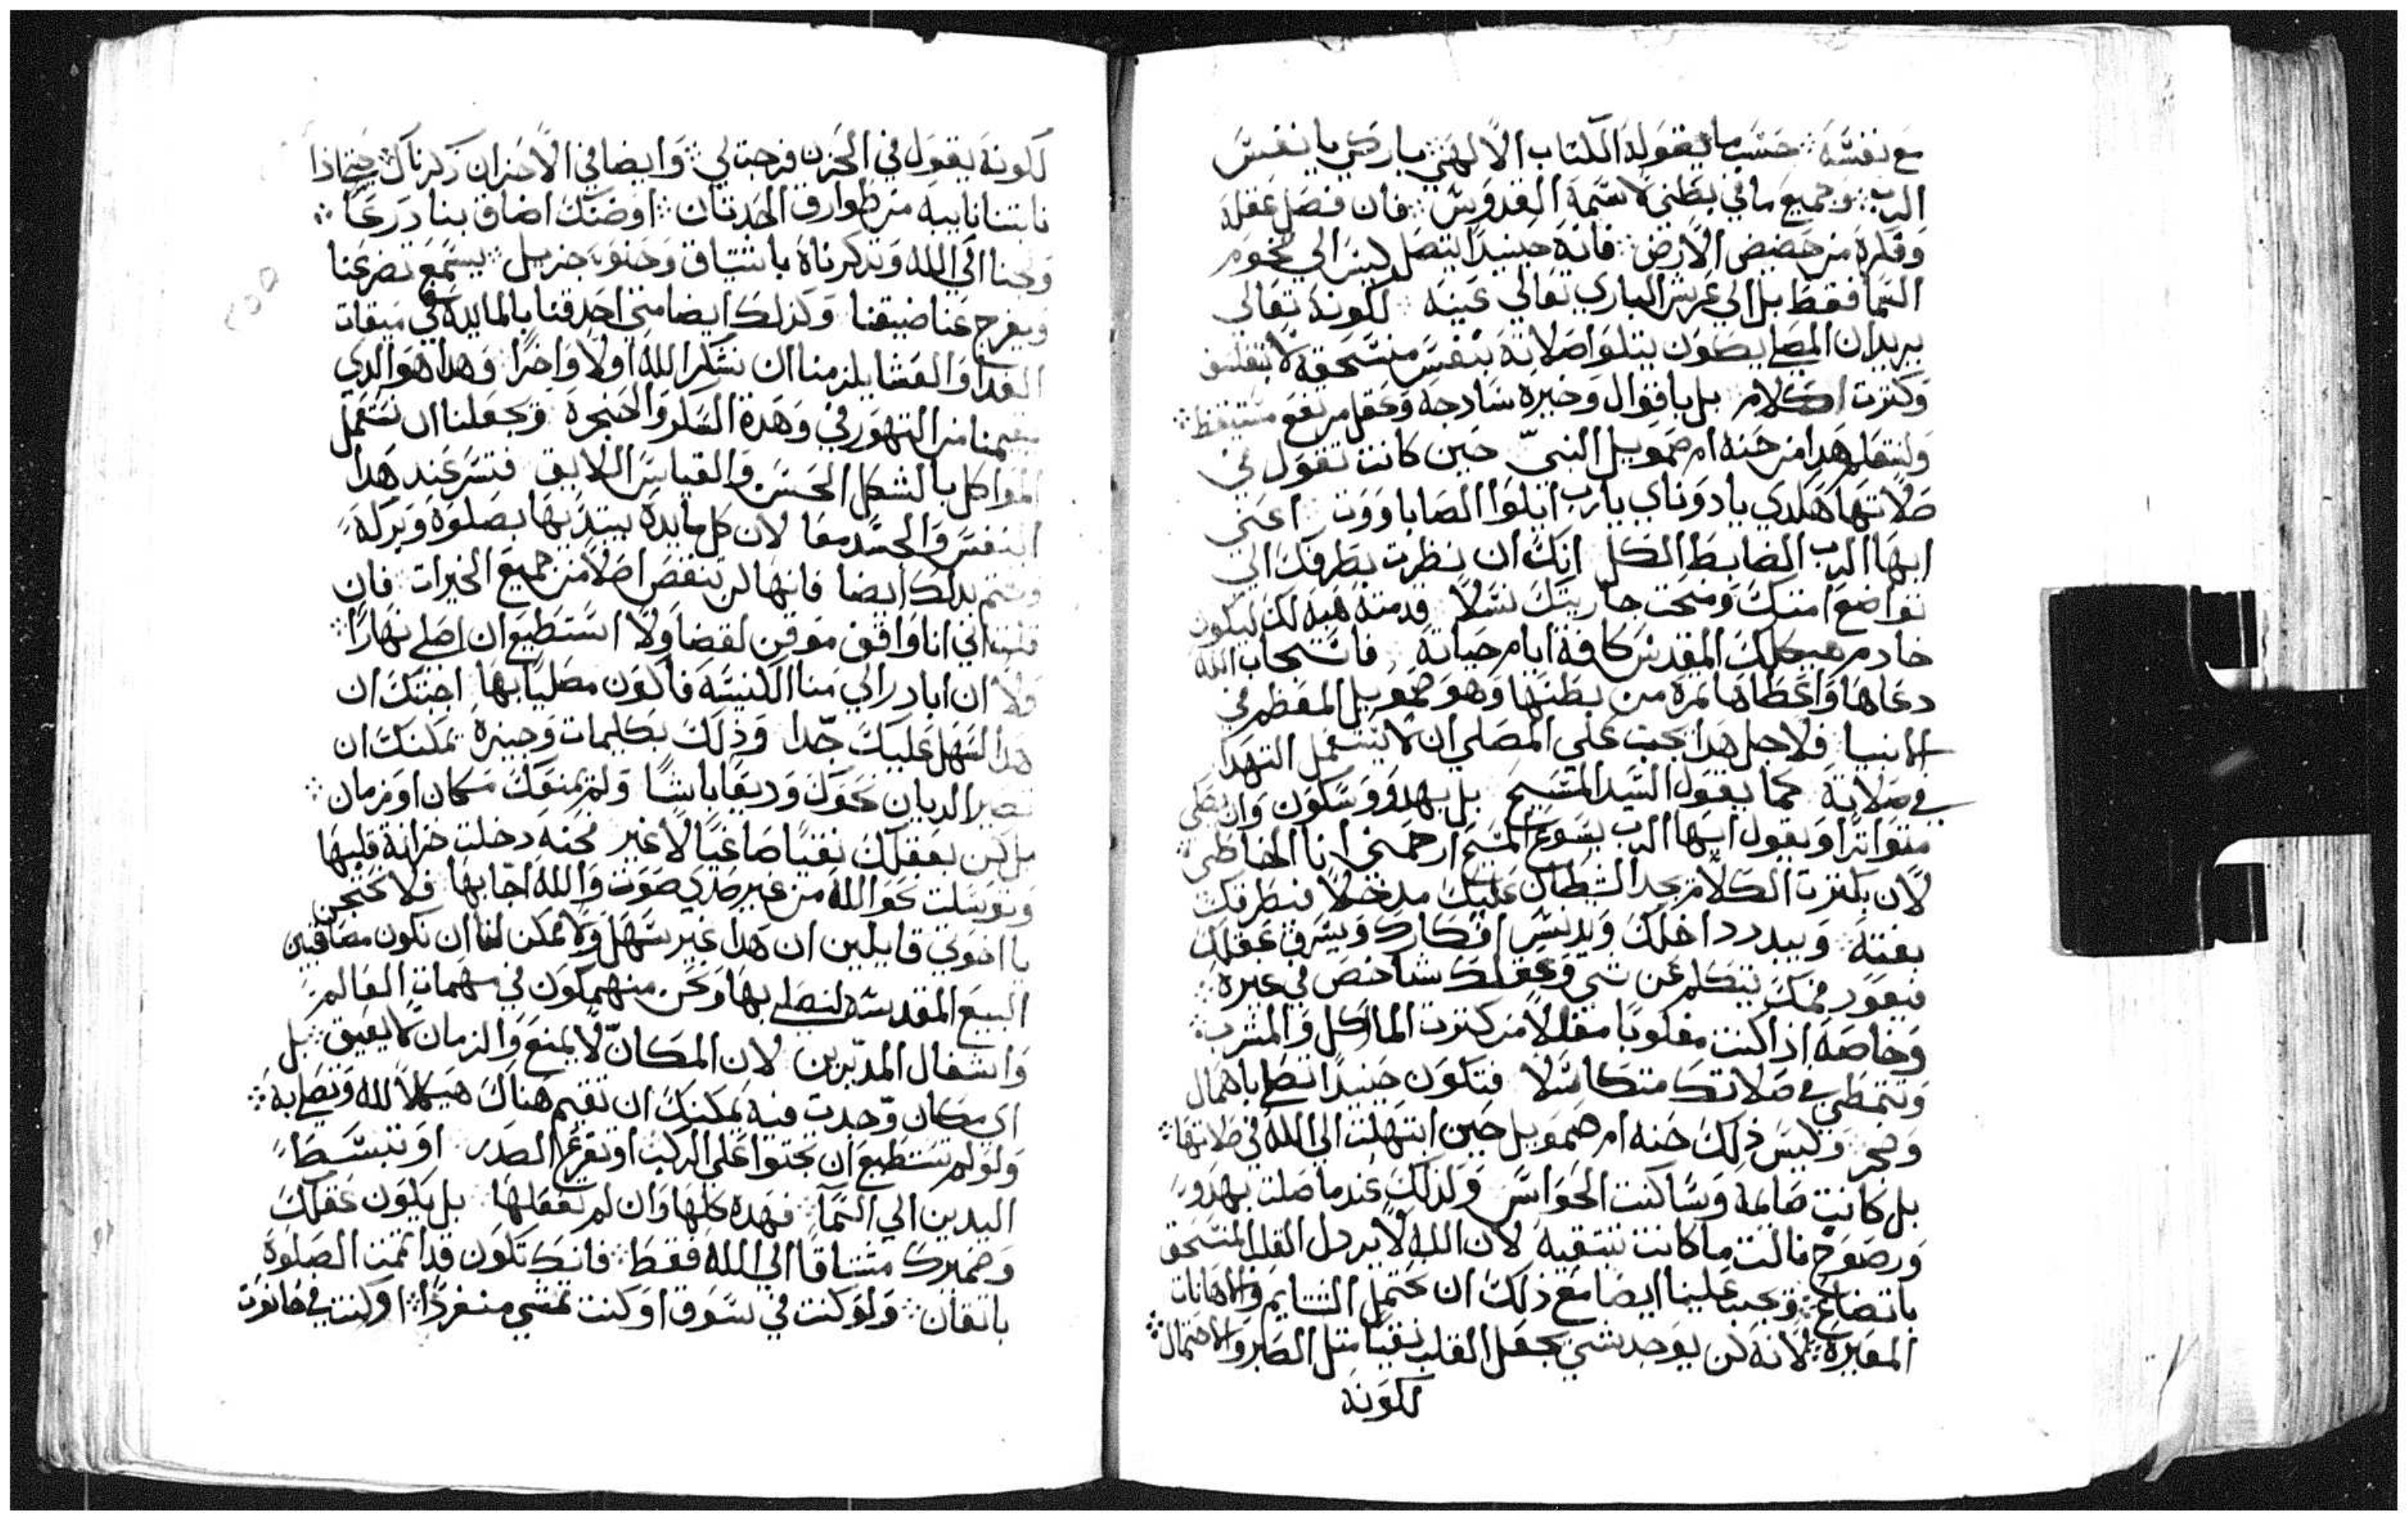 مع نفسه ፨ حسب ما يقوله الكتاب الالهي ፨ باركي يا نفس
الرب ፨ وجميع ما في بطني لاسمه القدوس ፨ فان فصل عقله
وفكره من حضيض الارض ፨ فانه حينيدًا يتصل ليس الي تخوم
السما فقط بل الي عرش الباري تعالي عينه لكونه تعالي
يريد ان المصلي يصون يتلوا صلاته بنفس منسحقه لا
وكترت الكلام بل باقوال وخيره سادجه وعقل مرتفع متيقظ ፨
ولنتعلم هدا من حنه ام صمويل النبيّ حين كانت تقول في
صلاتها هكدي يا دوناي يارب ايلوا الصاباووت اعني
ايها الرب الضابط الكل انك ان نظرت بطرفك الي
تواضع امتك ومنحت جاريتك نسلًا قدمته هبه لك ليكون
خادم هيكلك المقدس كافة ايام حياته فاستجاب الله
دعاها واعطاها تمرة من بطنها وهو صمويل المعظم في
الانبيا فلاجل هدا يجب علي المصلي ان لا يستعمل الهدر
في صلاته كما يقول السيد المسيح بل بهدو وسكون وان يصلي
متواترًا ويقول ايها الرب يسوع المسيح ارحمني انا الخاطي
لان بكترت الكلام يجد الشيطان عليك مدخلًا فيطرقك
بغتة وييدد داخلك ويدنس افكارك ويسرق عقلك
فيعود فمك يتكلم عن شي وعقلك شاخص في غيره
وخاصه اذا كنت مغلوبًا مثقلًا من كترت الماكل والمشرب
وتتمطي في صلاتك متكاسلًا فتكون حينيدًا تصلي باهمال
وضجر وليس ذلك حنه ام صمويل حين ابتهلت الي الله في صلاتها ፨
بل كانت صايمه وساكنت الحواس ولذلك عندما صلت بهدو
ورضوخ نالت ما كانت تبتغيه لان الله لا يردل القلب المنسحق
باتضاع ፨ ويجب علينا ايضا مع ذلك ان نحتمل الشتايم والاهانات
المغيره ፨ لانه لن يوجد شي يجعل القلب نقيا متل الصبر والاحتمال ፨
لكونه
لكونه يقول في الحزن فرجت لي ፨ وايضا في الاحزان ذكرناك ፨ اذا
نابتنا نايبه من طوارق الحدتان ፨ او ضنك اضاق بنا درعًا ፨
ولجنا الي الله وتذكرناه باشتياق وحنو جزيل ፨ يستمع تضرعنا
ويفرج عنا ضيقنا وكذلك ايضا متي احدقنا بالمايده في ميقات
الغدا والعشا يلزمنا ان نشكر الله اولًا واخرًا وهدا هو الدي
يعصمنا من التهور في وهدة السكر والحنجره ويجعلنا ان نستعمل
المواكل بالشكل الحسن والقياس اللايق فتسر عند هدا
النفس والجسد معا لان كل مايده يبتدي بها بصلوة وبركه
وتتم بدلك ايضا فانها لن تنقص اصلًا من جميع الخيرات فان
قلت اني انا واقف موقن لقضا ولا استطيع ان اصلي نهارًا ፨
ولا ان ابادر الي منا الكنيسه فاكون مصليًا بها اجبتك ان
هدا لسهل عليك جدا وذلك بكليمات وجيزه يمكنك ان
تصير الديان نحوك وديعًا باشًا ولم يمنعك مكان او زمان ፨
بل كن بعقلك نقيًا صاغيًا لا غير فحنه دخلت خزانة قلبها
وتوسلت نحو الله من غير صدي صوت والله اجابها فلا نحتجن
يا اخوتي قايلين ان هدا غير سهل ولا يمكن لنا ان نكون مصاقبين
البيع المقدسه لنصلي بها ونحن منهمكون في مهمات العالم
واشغال المدبرين لان المكان لا يمنع والزمان لا يعيق ፨ بل
اي مكان وجدت فيه يمكنك ان تقيم هناك هيكلًا لله وتصلي به ፨
ولو لم تستطيع ان تجتوا علي الركب او تقرع الصدر او تبسط
اليدين الي السما ፨ فهده كلها وان لم تفعلها بل يكون عقلك
وضميرك مشتاقًا الي الله فقط ፨ فانك تكون قد اتممت الصلوة
باتقان ፨ ولو كنت في سوق او كنت تمشي منفردًا ፨ او كنت في حانوت